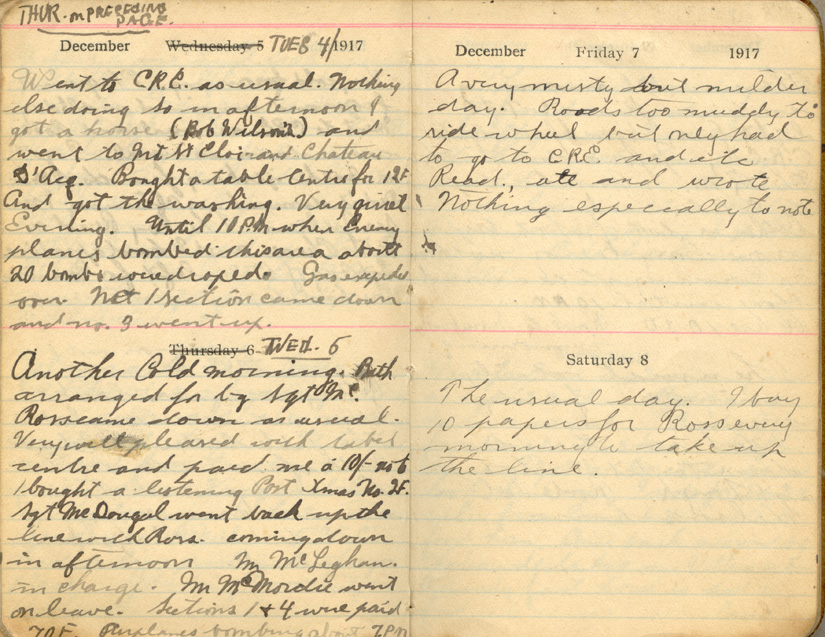 THUR. on PRECEDING
PAGE.
December Wednesday 5 TUES 4/1917
Went to C.R.E. as usual. Nothing
else doing so in afternoon I
got a horse (Bob Wilson's) and
went to Mt St Eloi and Chateau
D'Acq. Bought a table centre for 12F
And got the washing. Very quiet
Evening. Until 10 PM when Enemy
planes bombed this area about
20 bombs were droped. Gas
over. No 1 section came down
and no. 3 went up.
Thursday 6 WED. 5
Another Cold morning. Bath
arranged for by Sgt Mc.
Ross came down as usual.
Very well pleased with tabel
centre and paid me a 10/- note
I bought a listening Post Xmas No. 2F.
Sgt McDougal went back up the
line with Ross. coming down
in afternoon Mr McLeghan.
in charge. Mr McMordie went
on leave. Sections 1 & 4 were paid
70F. Airplanes bombing about 7 PM
December Friday 7 1917
A very misty but milder
day. Roads too muddy to
ride wheel but only had
to go to C.R.E. and etc
Read, ate and wrote
Nothing especially to note
Saturday 8
The usual day. I buy
10 papers for Ross every
morning to take up
the line.